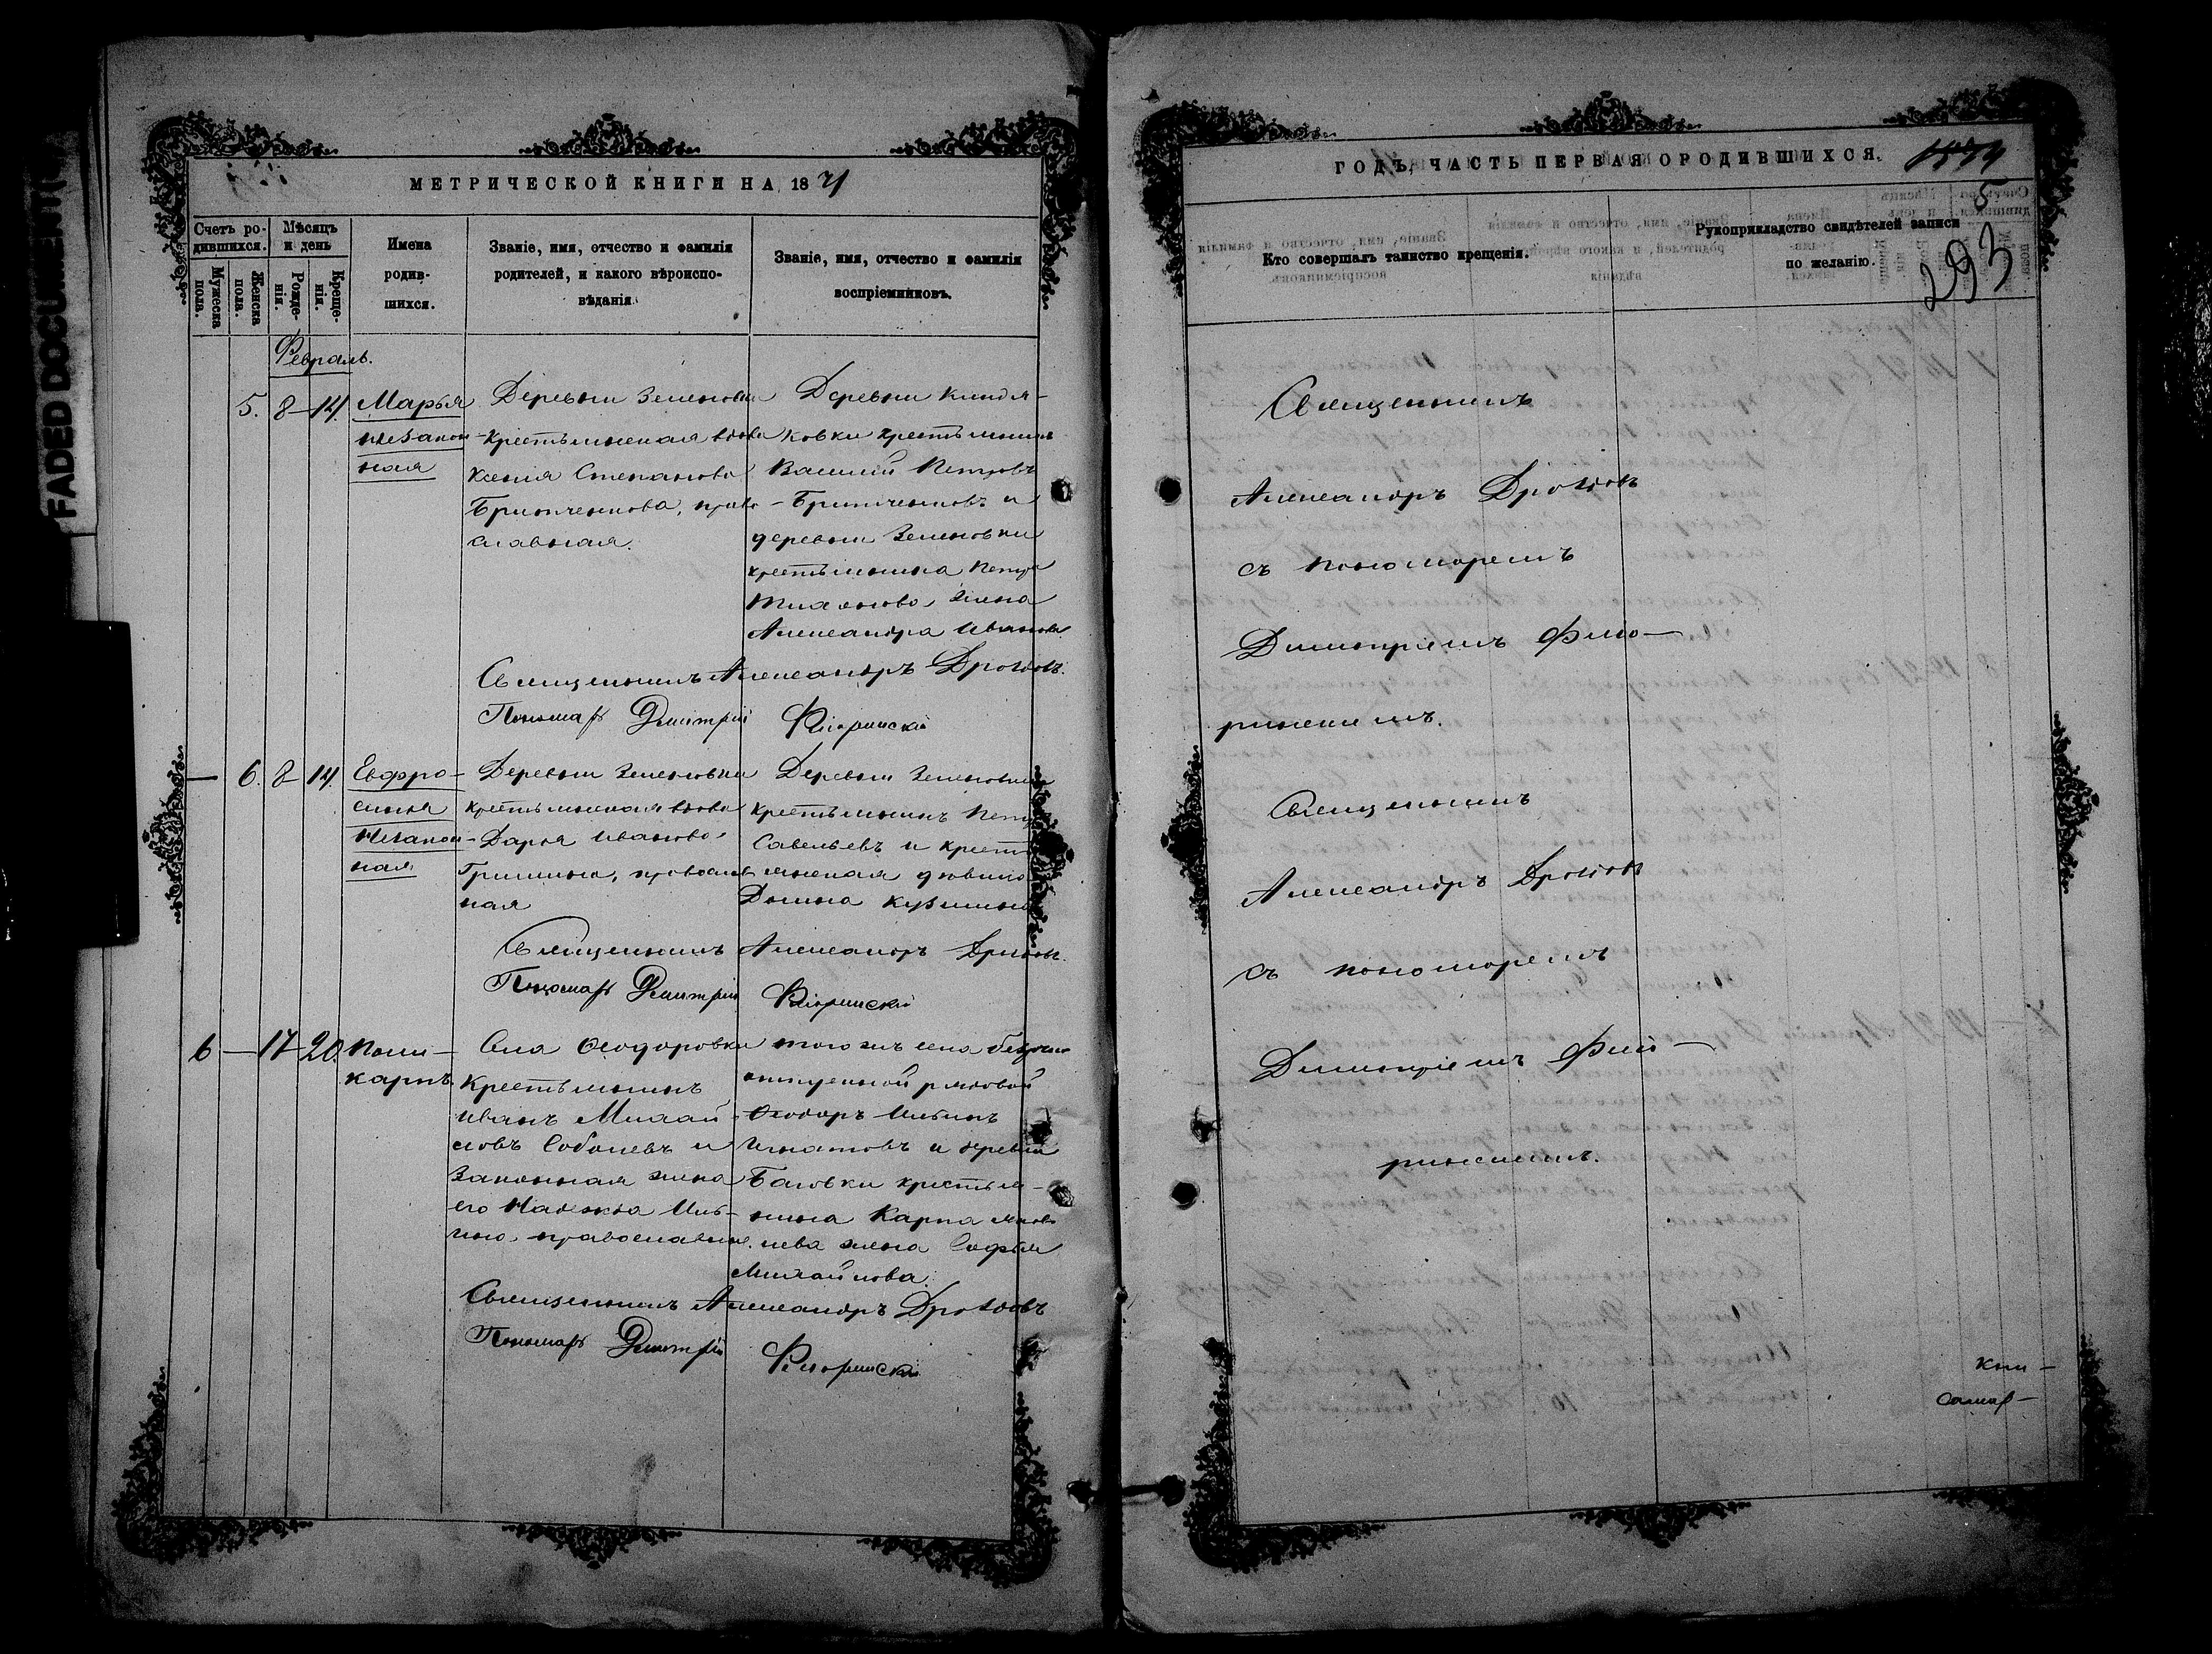 FADED DOCUMENT
МЕТРИЧЕСКОЙ КНИГИ НА 1871
Счетъ ро-
дившихся.
Мужеска
пола.
Женска
пола.
Мѣсяцъ
и день
Рожде-
нія.
Креще-
нія.
Имена
родив-
шихся.
Званіе, имя, отчество и фамилія
родителей, и какого вѣроиспо-
вѣданія.
Званіе, имя, отчество и фамилія
воспріемниковъ.
Февраль.
5. 8 14. Марья
незакон-
ная
Деревни Зеленовки
крестьянская вдова
Ксенія Степанова
православная.
Деревни Киндя-
ковки крестьянинъ
Василій Петровъ
и
деревни Зеленовки
крестьянина Петра
жена
Александра Иванова
Священникъ Александръ Дроздовъ.
Пономарь Димитрій Флоринскій
6. 8 14. Евфро-
синія
незакон-
ная
Деревни Зеленовки
крестьянская вдова
Дарья Иванова
Гришина, православ
ная
Деревни Зеленовки
крестьянинъ Петръ
Савельевъ и кресть
янская дѣвица
Домна Кузьмина
Священникъ Александръ Дроздовъ.
Пономарь Димитрій Флоринскій
6 — 17 20. Поли-
карпъ.
Села Ѳеодоровки
крестьянинъ
Иванъ Михай-
ловъ Соболевъ и
законная жена
его Надежда Иль-
ина, православные.
тогожъ села безсрочно
отпускной рядовой
Ѳеодоръ Ильинъ
Игнатовъ и деревни
крестья-
нина Карпа Яков
лева жена Софья
Михайлова.
Священникъ Александръ Дроздовъ
Пономарь Димитрій Флоринскій
ГОДЪ, ЧАСТЬ ПЕРВАЯ О РОДИВШИХСЯ.
5
293
Кто совершалъ таинство крещенія.
Рукоприкладство свидѣтелей записи
по желанію.
Священникъ
Александръ Дроздовъ
съ пономаремъ
Димитріемъ Фло-
ринскимъ.
Священникъ
Александръ Дроздовъ
съ пономаремъ
Димитріемъ Фло-
ринскимъ.